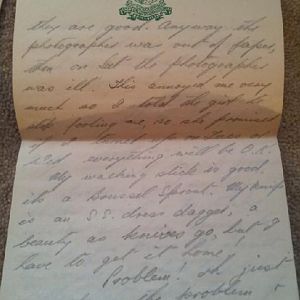 they are good. Anyway the
photographer was out of paper,
then on Sat the photographer
was ill! This annoyed me very
much so I told the girl to
stop fooling me, so she promised
if I
Wed everything will be O.K.
My walking stick is good,
its a Brussel Sprout. My knife
is an S.S. dress dagger, a
beauty as knives go, but I
have to get it home,
Problem! Oh just
the problem